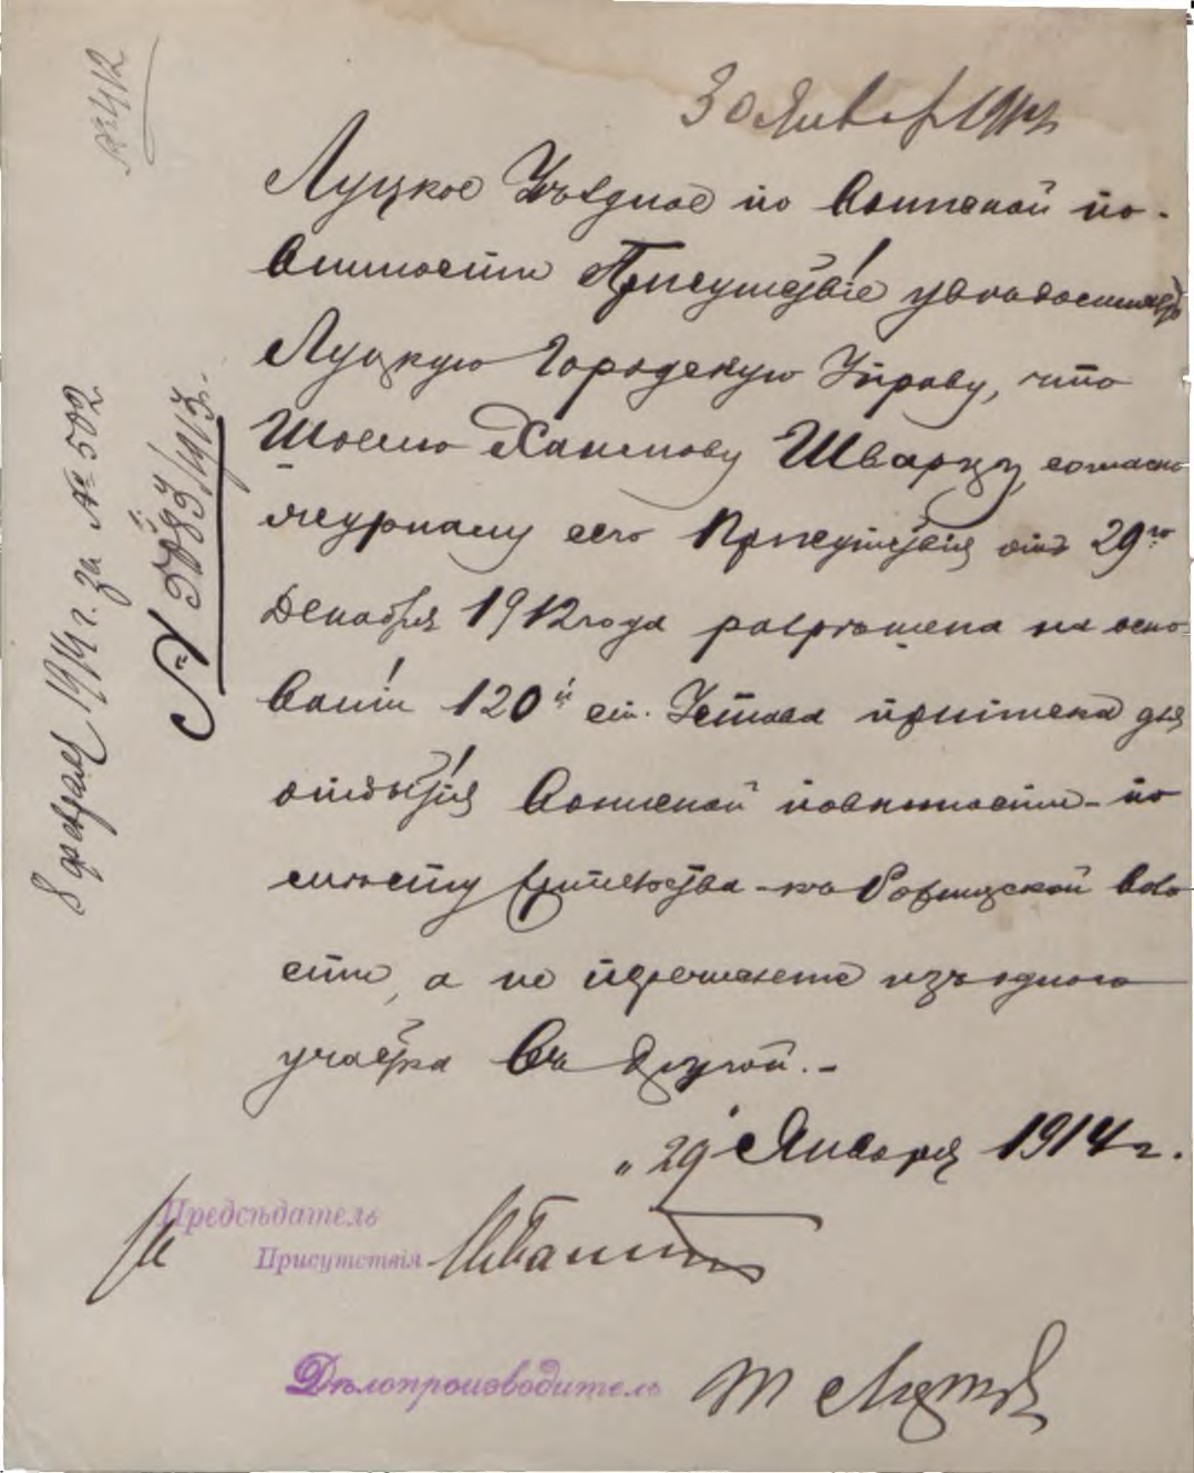 № 412
30 Январ 1914
Луцкое Уѣздное по воинской по-
винности Присутствіе увѣдомляетъ
Луцкую Городскую Управу, что
Шоелю Хаимову Шварцу, согласно
журналу сего Присутствія отъ 29го
Декабря 1912 года разрѣшена на осно
ваніи 120й ст. Устава приписка для
отбытія воинской повинности - по
мѣсту жительства - къ Рожищской воло
сти, а не перечисленіе изъ одного
участка въ другой.-
"29" Января 1914 г.
Предсѣдатель
Присутствія
Дѣлопроизводитель
8 февраля 1914 г. за № 502
№ 5083/1913.